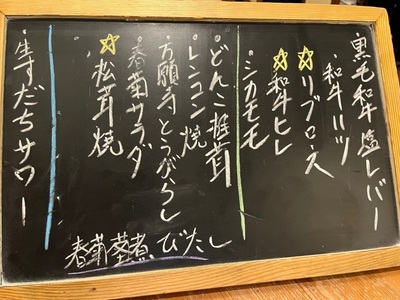 黒毛和牛塩レバー
和牛ハツ
☆リブロース
☆和牛ヒレ
・シカモモ
・どんこ椎茸
・レンコン焼
・万願寺とうがらし
・春菊サラダ
☆松茸焼
・生すだちサワー
春菊茎煮びたし